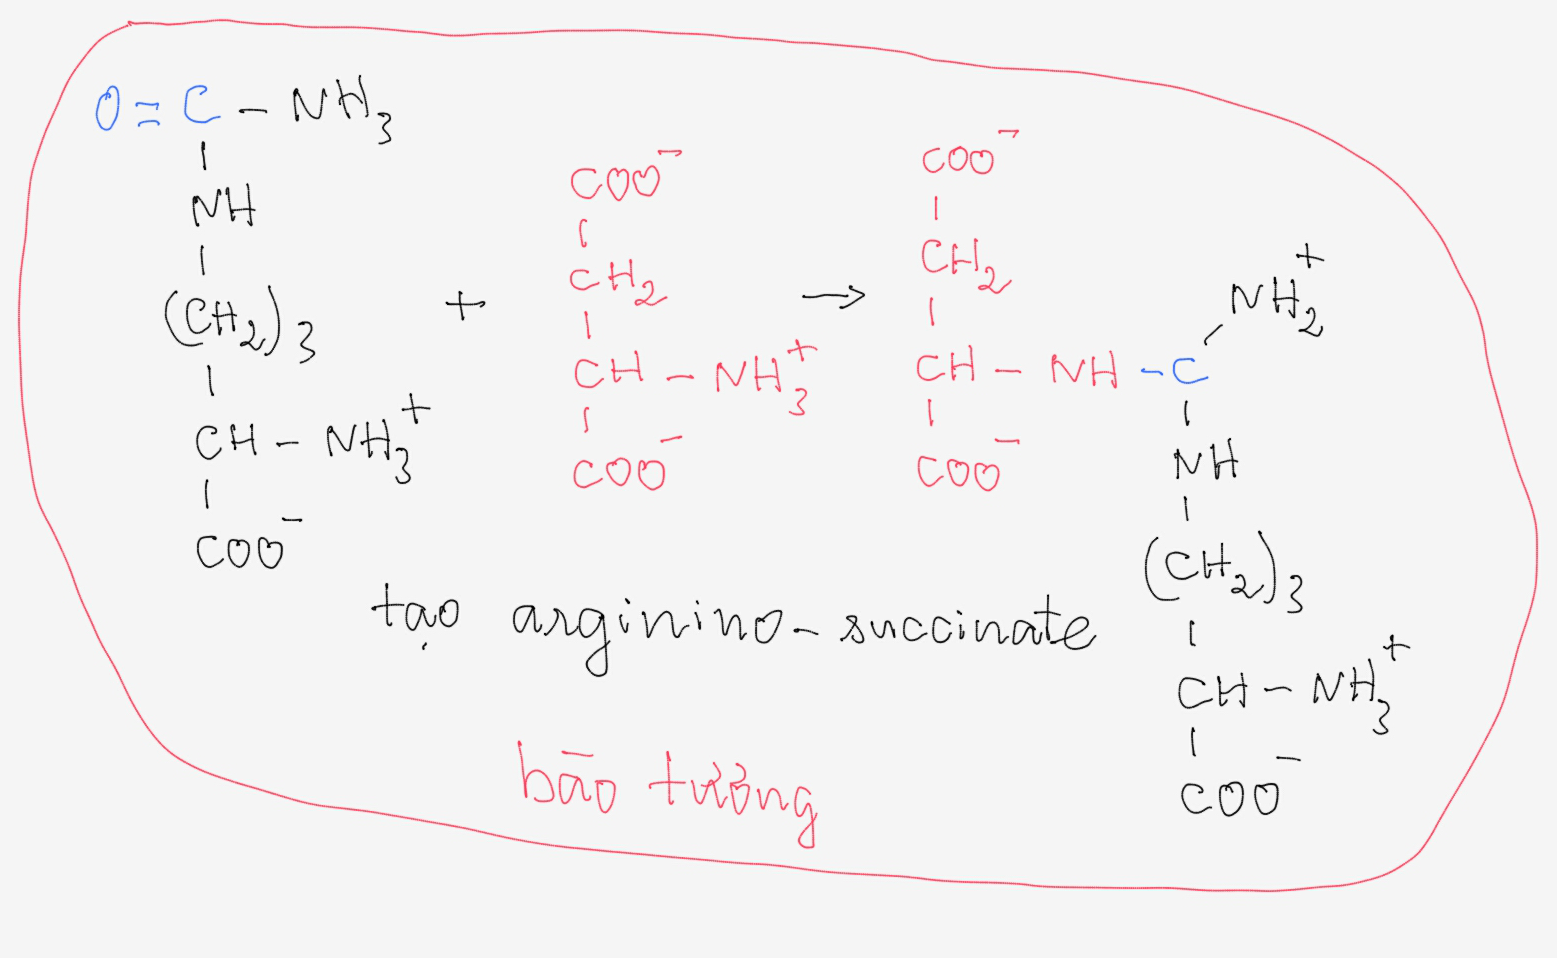 O = C – NH₃
|
NH
|
(CH₂)₃
|
CH – NH₃⁺
|
COO⁻
+
COO⁻
|
CH₂
|
CH – NH₃⁺
|
COO⁻
→
COO⁻
|
CH₂
|
CH – NH – C – NH₂⁺
|
COO⁻
|
NH
|
(CH₂)₃
|
CH – NH₃⁺
|
COO⁻
tạo arginino-succinate
bāo tưởng